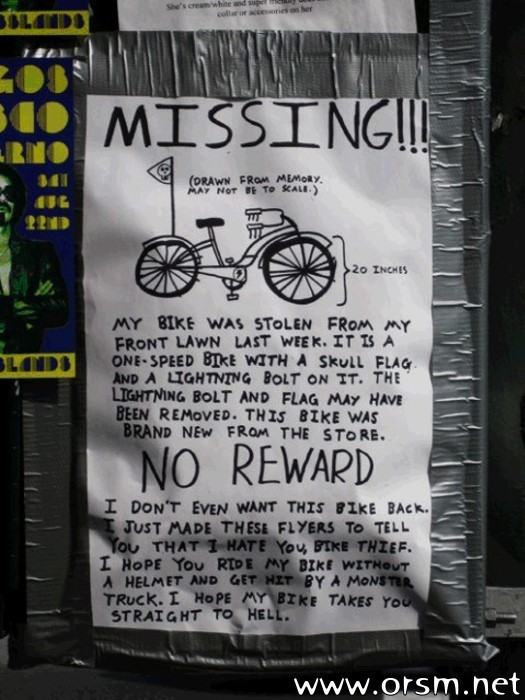 She's cream/white and super friendly
collar or accessories on her
SSLANDS
GOS
SCO
ERNO
SAT
AUG
22ND
SLANDS
MISSING!!!
(DRAWN FROM MEMORY.
MAY NOT BE TO SCALE.)
20 INCHES
MY BIKE WAS STOLEN FROM MY
FRONT LAWN LAST WEEK. IT IS A
ONE-SPEED BIKE WITH A SKULL FLAG
AND A LIGHTNING BOLT ON IT. THE
LIGHTNING BOLT AND FLAG MAY HAVE
BEEN REMOVED. THIS BIKE WAS
BRAND NEW FROM THE STORE.
NO REWARD
I DON'T EVEN WANT THIS BIKE BACK.
I JUST MADE THESE FLYERS TO TELL
YOU THAT I HATE YOU, BIKE THIEF.
I HOPE YOU RIDE MY BIKE WITHOUT
A HELMET AND GET HIT BY A MONSTER
TRUCK. I HOPE MY BIKE TAKES YOU
STRAIGHT TO HELL.
www.orsm.net